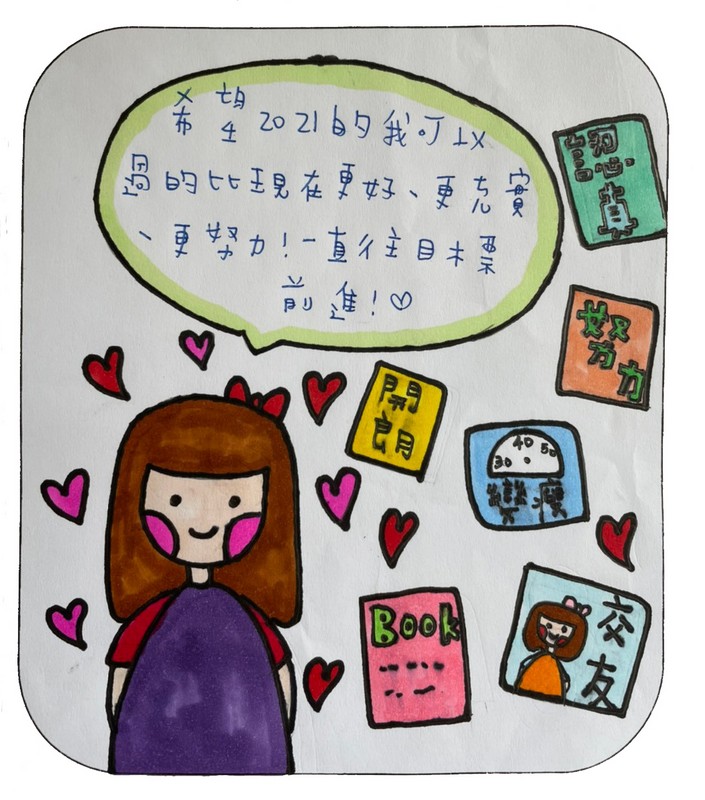 希望2021的我可以
過的比現在更好、更充實
、更努力!一直往目標
前進!♡
認真
努力
開朗
30 40 50
變瘦
Book
交友